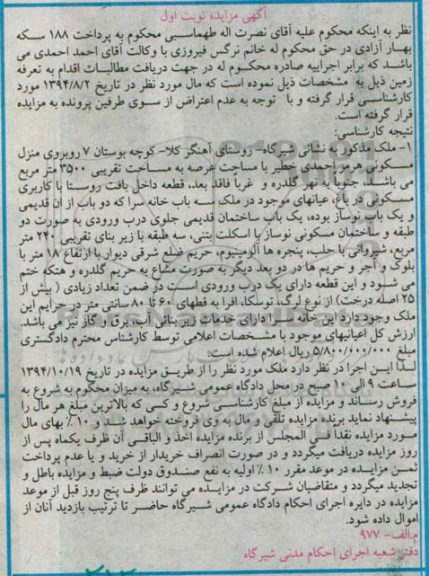 آگهی مزایده نوبت اول
نظر به اینکه محکوم علیه آقای نصرت اله طهماسبی محکوم به پرداخت ۱۸۸ سکه
بهار آزادی در حق محکوم له خانم نرگس فیروزی با وکالت آقای احمد احمدی می
باشد که برابر اجراییه صادره محکوم له در جهت دریافت مطالبات اقدام به تعرفه
زمین ذیل به مشخصات ذیل نموده است که مال مورد نظر در تاریخ ۱۳۹۴/۸/۲ مورد
کارشناسی قرار گرفته و با توجه به عدم اعتراض از سوی طرفین پرونده به مزایده
قرار گرفته است.
نتیجه کارشناسی:
۱- ملک مذکور به نشانی شیرگاه- روستای آهنگر کلا- کوچه بوستان ۷ روبروی منزل
مسکونی هرمز احمدی خطیر با مساحت عرصه به مساحت تقریبی ۳۵۰۰ متر مربع
می باشد. جنوبا به نهر گلدره و غربا فاقد بعد، قطعه داخل بافت روستا با کاربری
مسکونی در باغ، عیانهای موجود در ملک سه باب خانه سرا که دو باب از آن قدیمی
و یک باب نوساز بوده، یک باب ساختمان قدیمی جلوی درب ورودی به صورت دو
طبقه و ساختمان مسکونی نوساز با اسکلت بتنی، سه طبقه با زیر بنای تقریبی ۲۴۰ متر
مربع، شیروانی با حلب، پنجره ها آلومینیوم، حریم ضلع شرقی دیوار با ارتفاع ۱۸ متر با
بلوک و آجر و حریم ها در دو بعد دیگر به صورت مشاع به حریم گلدره و هتکه ختم
می شود و این قطعه دارای یک درب ورودی است در ضمن تعداد زیادی ( بیش از
۲۵ اصله درخت) از نوع لرگ، توسکا، افرا به قطهای ۶۰ تا ۸۰ سانتی متر در حرایم این
ملک وجود دارد این خانه سرا دارای خدمات زیر بنائی آب، برق و گاز نیز می باشد.
ارزش کل اعیانیهای موجود با مشخصات اعلامی توسط کارشناس محترم دادگستری
مبلغ ۵/۸۰۰/۰۰۰/۰۰۰ ریال اعلام شده است.
لذا این اجرا در نظر دارد ملک مورد نظر را از طریق مزایده در تاریخ ۱۳۹۴/۱۰/۱۹
ساعت ۹ الی ۱۰ صبح در محل دادگاه عمومی شیرگاه، به میزان محکوم به شروع به
فروش رساند و مزایده از مبلغ کارشناسی شروع و کسی که بالاترین مبلغ هر مال را
پیشنهاد نماید برنده مزایده تلقی و مال به وی فروخته خواهد شد و ۱۰ ٪ بهای مال
مورد مزایده نقدا فی المجلس از برنده مزایده اخذ و الباقی آن ظرف یکماه پس از
روز مزایده دریافت میگردد و در صورت انصراف خریدار از خرید و یا عدم پرداخت
ثمن مزایده در موعد مقرر ۱۰ ٪ اولیه به نفع صندوق دولت ضبط و مزایده باطل و
تجدید میگردد و متقاضیان شرکت در مزایده می توانند ظرف پنج روز قبل از موعد
مزایده در دایره اجرای احکام دادگاه عمومی شیرگاه حاضر تا ترتیب بازدید آنان از
اموال داده شود.
م.الف- ۹۷۷
دفتر شعبه اجرای احکام مدنی شیرگاه